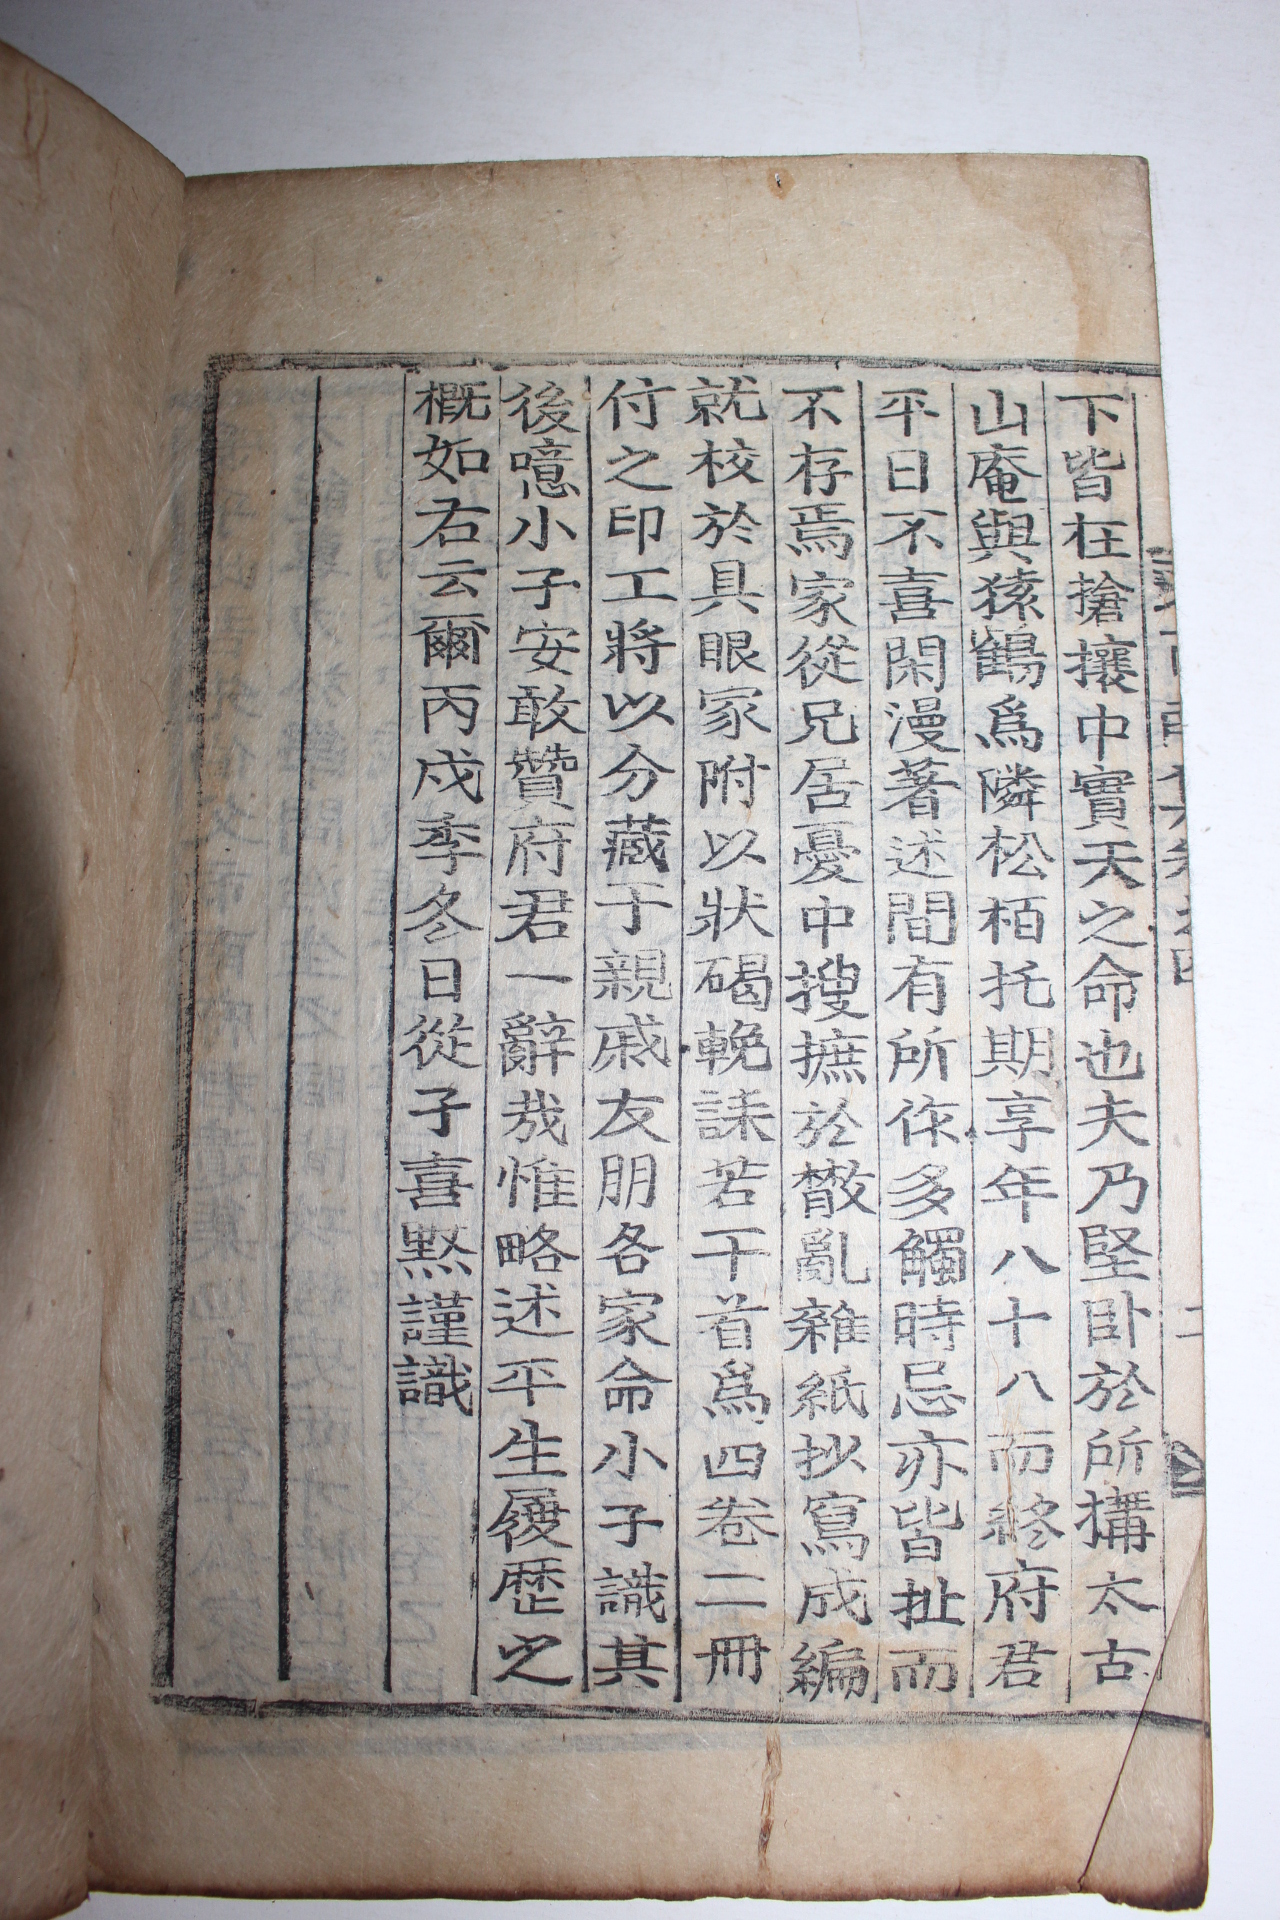 下皆在搶攘中實天之命也夫乃堅臥於所搆太古
山庵與猿鶴爲隣松栢托期享年八十八而終府君
平日不喜閑漫著述間有所作多觸時忌亦皆扯而
不存焉家從兄居憂中搜摭於散亂雜紙抄寫成編
就校於具眼家附以狀碣輓誄若干首爲四卷二冊
付之印工將以分藏于親戚友朋各家命小子識其
後噫小子安敢贊府君一辭哉惟略述平生履歷之
槪如右云爾丙戌季冬日從子喜黙謹識